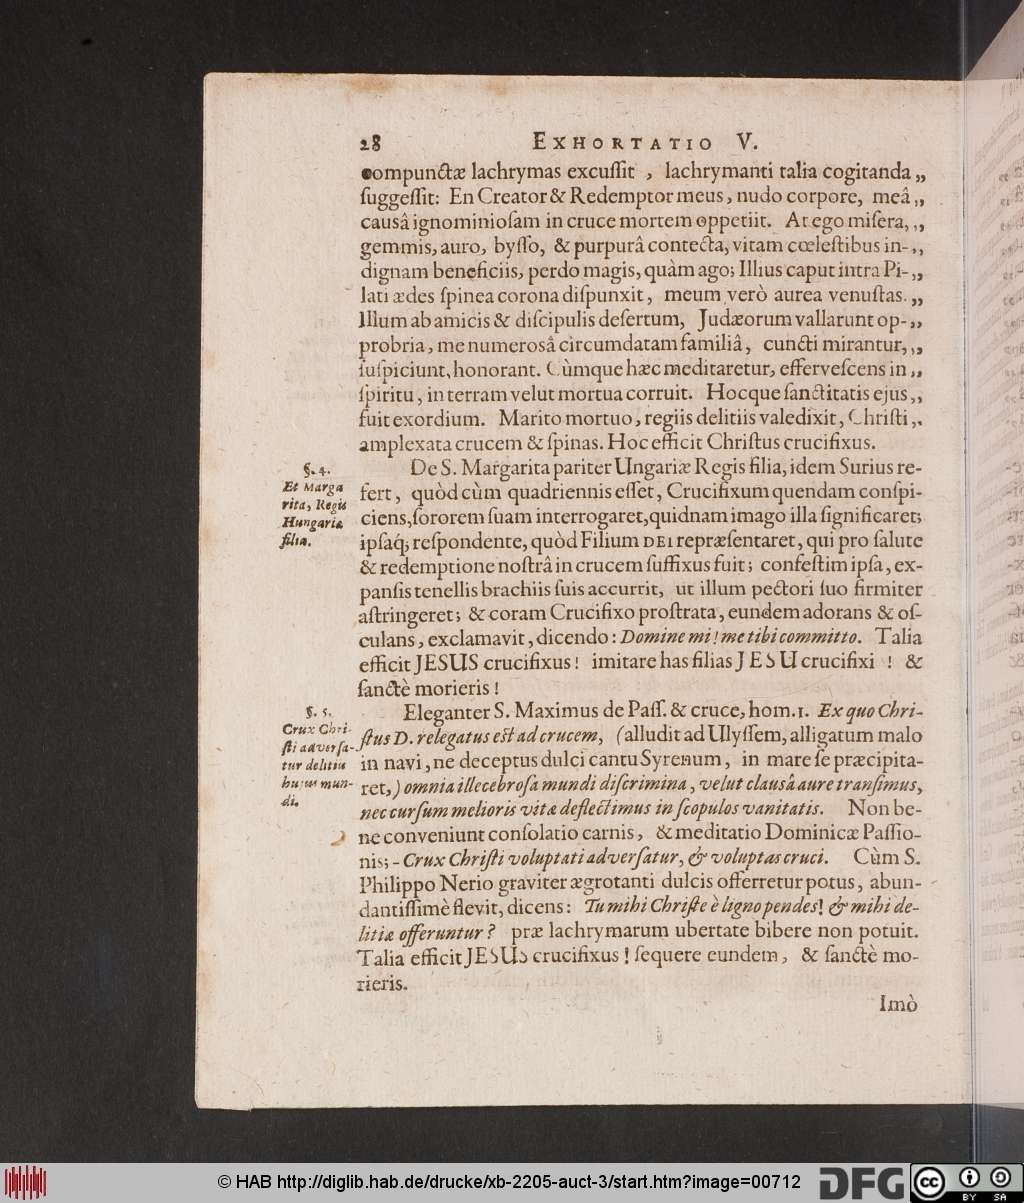 28 EXHORTATIO V.
compunctæ lachrymas excuſſit , lachrymanti talia cogitanda „
ſuggeſſit: En Creator & Redemptor meus, nudo corpore, meâ „
causâ ignominioſam in cruce mortem oppetiit. At ego miſera, „
gemmis, auro, byſſo, & purpurâ contecta, vitam cœleſtibus in- „
dignam beneficiis, perdo magis, quàm ago; Illius caput intra Pi- „
lati ædes ſpinea corona diſpunxit, meum verò aurea venuſtas. „
Illum ab amicis & diſcipulis deſertum, Judæorum vallarunt op- „
probria, me numerosâ circumdatam familiâ, cuncti mirantur, „
ſuſpiciunt, honorant. Cùmque hæc meditaretur, efferveſcens in „
ſpiritu, in terram velut mortua corruit. Hocque ſanctitatis ejus „
fuit exordium. Marito mortuo, regiis delitiis valedixit, Chriſti „
amplexata crucem & ſpinas. Hoc efficit Chriſtus crucifixus.
§. 4.
Et Marga
rita, Regis
Hungariæ
filia.
De S. Margarita pariter Ungariæ Regis filia, idem Surius re-
fert, quòd cùm quadriennis eſſet, Crucifixum quendam conſpi-
ciens, ſororem ſuam interrogaret, quidnam imago illa ſignificaret;
ipſaq́; reſpondente, quòd Filium DEI repræſentaret, qui pro ſalute
& redemptione noſtrâ in crucem ſuffixus fuit; confeſtim ipſa, ex-
panſis tenellis brachiis ſuis accurrit, ut illum pectori ſuo firmiter
aſtringeret; & coram Crucifixo proſtrata, eundem adorans & oſ-
culans, exclamavit, dicendo: Domine mi! me tibi committo. Talia
efficit JESUS crucifixus! imitare has filias JESU crucifixi ! &
ſanctè morieris!
§. 5.
Crux Chri-
ſti adverſa-
tur delitiis
hujus mun-
di.
Eleganter S. Maximus de Paſſ. & cruce, hom. 1. Ex quo Chri-
ſtus D. relegatus eſt ad crucem, (alludit ad Ulyſſem, alligatum malo
in navi, ne deceptus dulci cantu Syrenum, in mare ſe præcipita-
ret,) omnia illecebroſa mundi diſcrimina, velut clausâ aure tranſimus,
nec curſum melioris vitæ deflectimus in ſcopulos vanitatis. Non be-
ne conveniunt conſolatio carnis, & meditatio Dominicæ Paſſio-
nis; - Crux Chriſti voluptati adverſatur, & voluptas cruci. Cùm S.
Philippo Nerio graviter ægrotanti dulcis offerretur potus, abun-
dantiſſimè flevit, dicens: Tu mihi Chriſte è ligno pendes! & mihi de-
litiæ offeruntur? præ lachrymarum ubertate bibere non potuit.
Talia efficit JESUS crucifixus! ſequere eundem, & ſanctè mo-
rieris.
Imò
© HAB http://diglib.hab.de/drucke/xb-2205-auct-3/start.htm?image=00712
DFG
cc BY SA